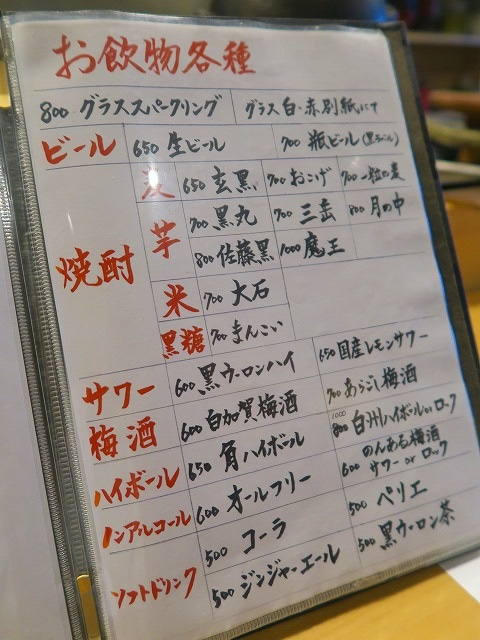 お飲物各種
800 グラススパークリング グラス白・赤別紙にて
ビール 650 生ビール 700 瓶ビール(黒ラベル)
焼酎
麦 650 玄黒 700 おこげ 700 一粒の麦
芋 700 黒丸 700 三岳 800 月の中
800 佐藤黒 1000 魔王
米 700 大石
黒糖 700 まんこい
サワー 600 黒ウーロンハイ 650 国産レモンサワー
梅酒 600 白加賀梅酒 700 あらごし梅酒
ハイボール 650 角ハイボール 1000 800 白州ハイボールorロック
ノンアルコール 600 オールフリー 600 のんある梅酒 サワー or ロック
ソフトドリンク 500 コーラ 500 ペリエ
500 ジンジャーエール 500 黒ウーロン茶